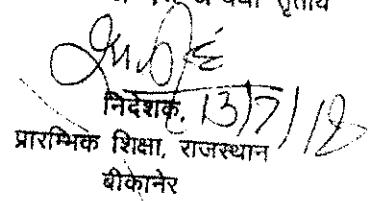 तृतीय
निदेशक, 13/7/18
प्रारम्भिक शिक्षा, राजस्थान
बीकानेर